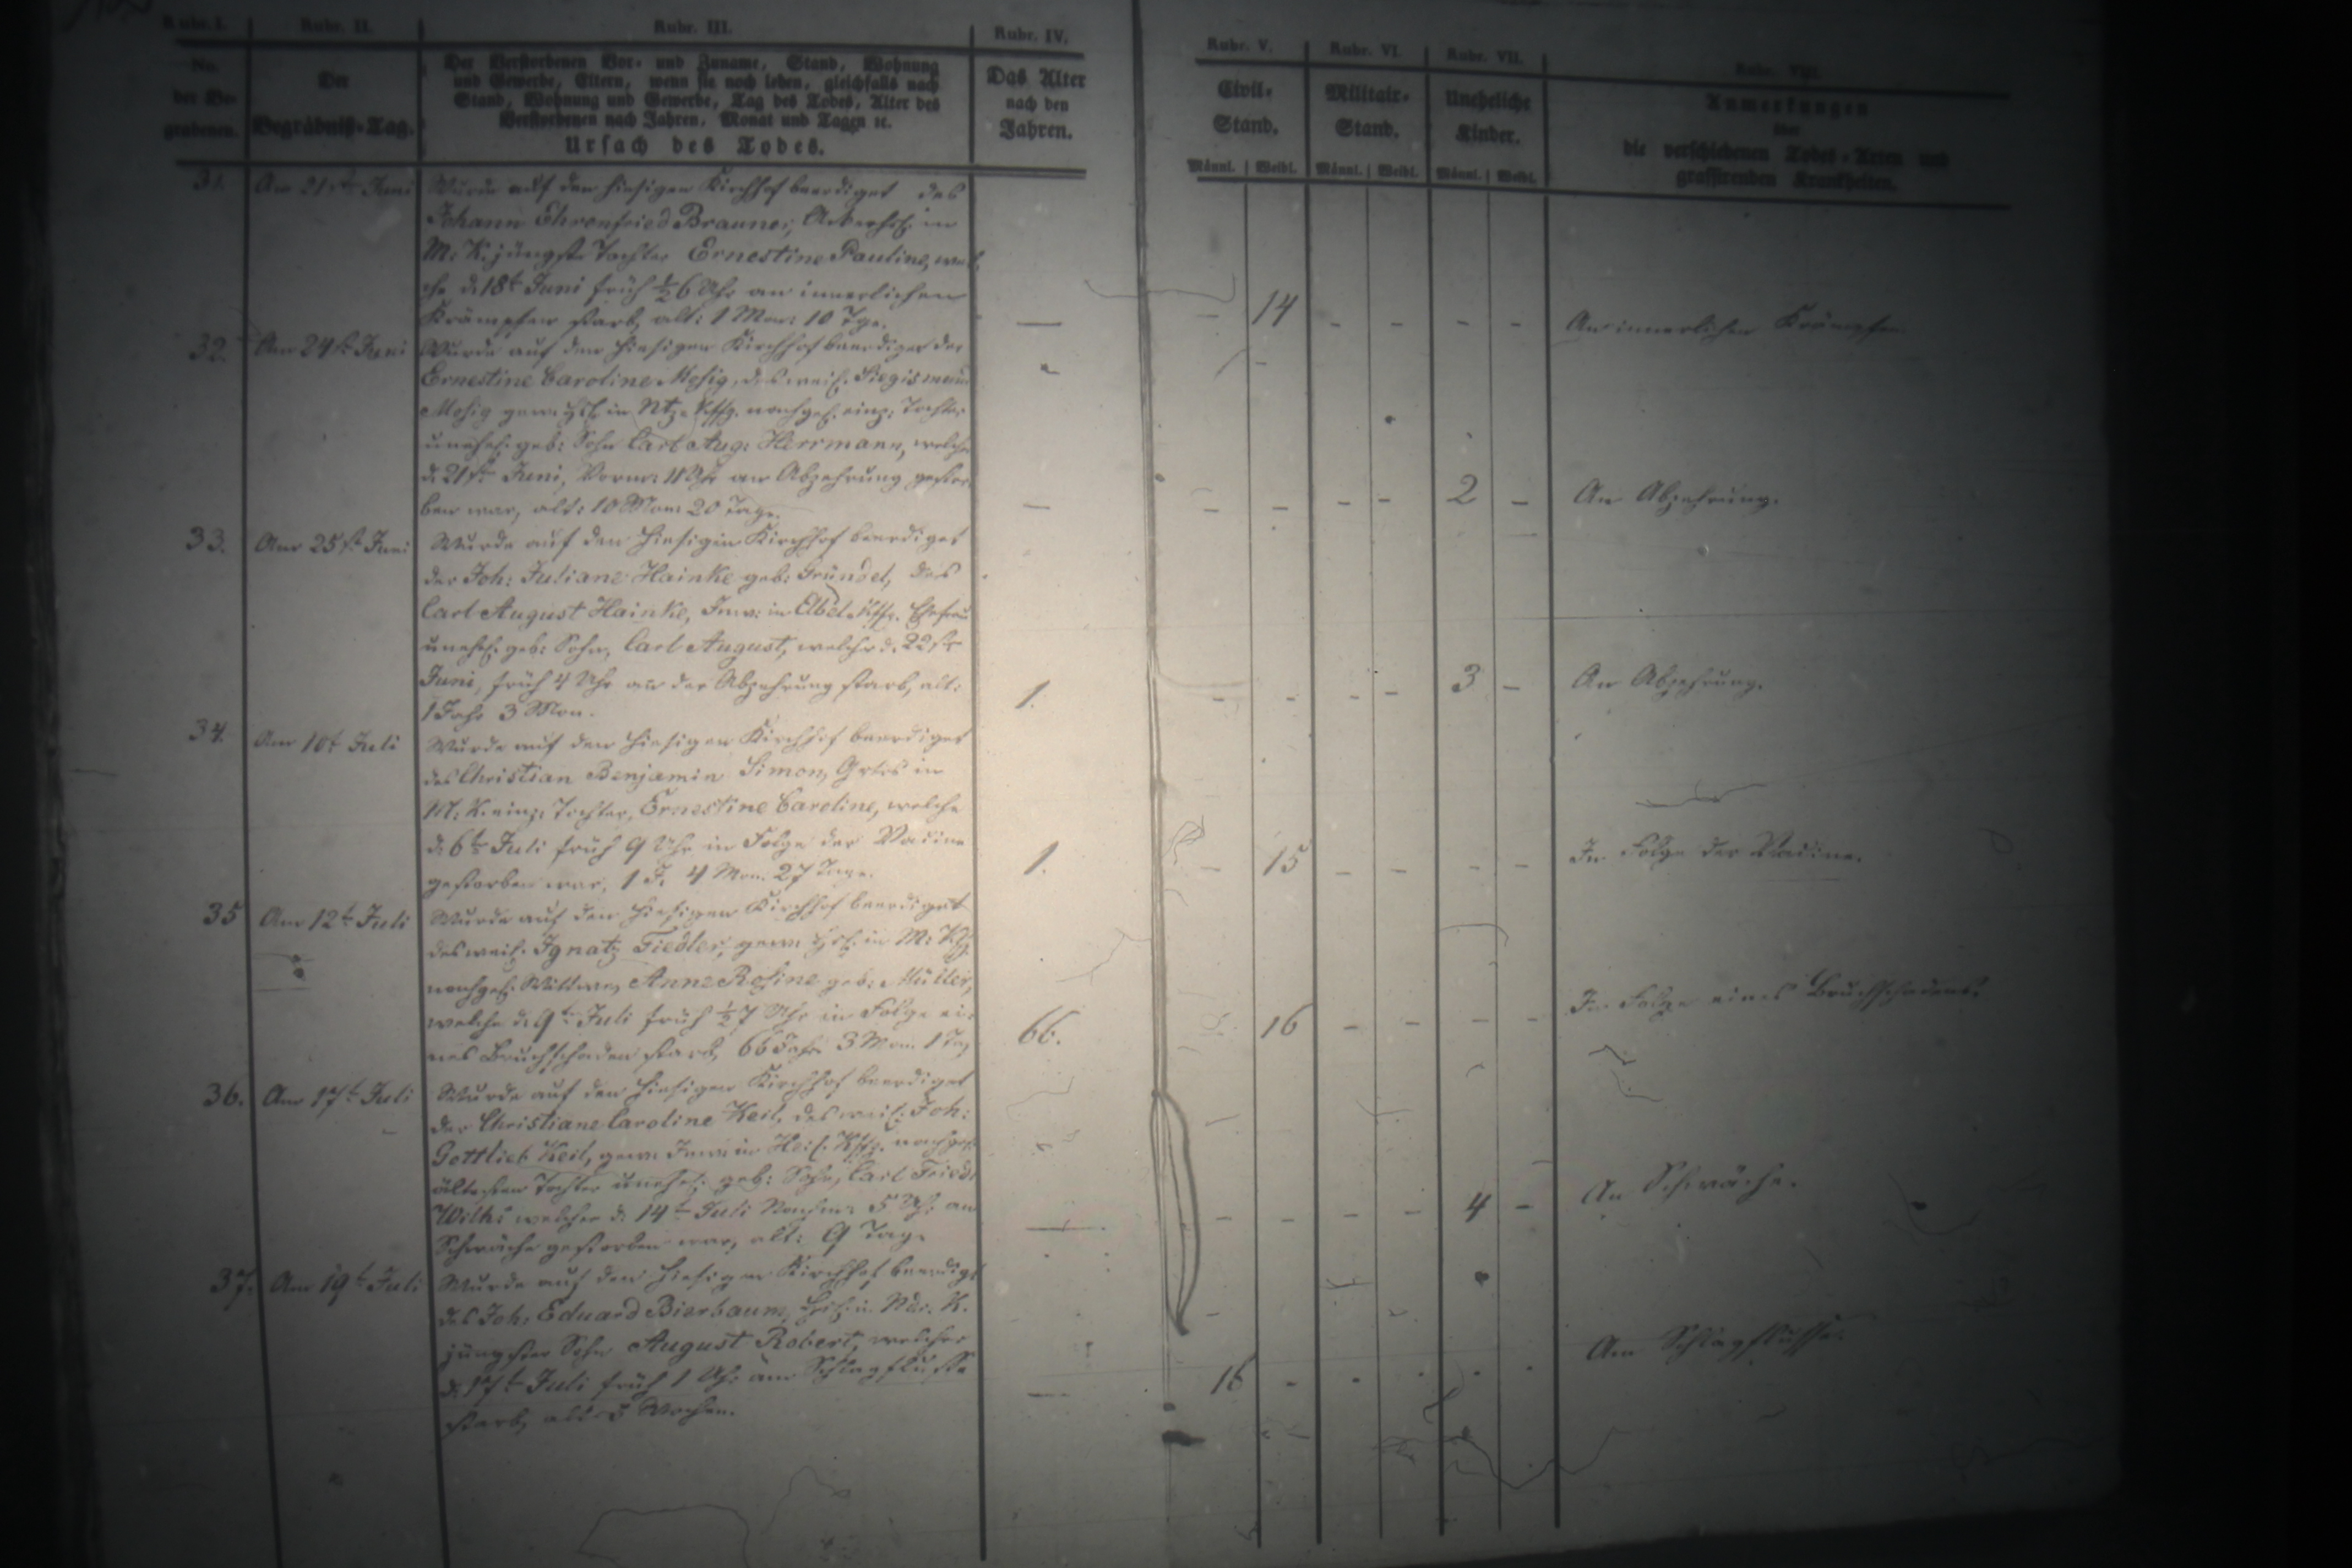 Rubr. I. Rubr. II. Rubr. III. Rubr. IV. Rubr. V. Rubr. VI. Rubr. VII. Rubr. VIII.
No. der Be- grabenen.
Der Begräbniß-Tag.
Der Verstorbenen Vor- und Zuname, Stand, Wohnung
und Gewerbe, Eltern, wenn sie noch leben, gleichfalls nach
Stand, Wohnung und Gewerbe, Tag des Todes, Alter des
Verstorbenen nach Jahren, Monat und Tagen ꝛc.
Ursach des Todes.
Das Alter
nach den
Jahren.
Civil-
Stand.
Männl. Weibl.
Militair-
Stand.
Männl. Weibl.
Uneheliche
Kinder.
Männl. Weibl.
Anmerkungen
über
die verschiedenen Todes-Arten und
grassirenden Krankheiten.
31. Am 21st Juni Wurde auf den hiesigen Kirchhof beerdiget des
Johann Ehrenfried Brauner, in
M: K. jüngste Tochter Ernestine Pauline, wel-
che d. 18t Juni früh ½6 Uhr an innerlichen
Krämpfen starb, alt: 1 Mon: 10 Tge. — – 14 – – – – An innerlichen Krämpfen
32. Am 24st Juni Wurde auf den hiesigen Kirchhof beerdiget der
Ernestine Caroline Mosig, des weil. Siegismund
Mosig gew. in nachgel. einz: Tochter
unehel. geb: Sohn Carl Aug: Herrmann, welcher
d. 21st Juni, Vorm: 11 Uhr an Abzehrung gestor-
ben war, alt: 10 Mon: 20 Tage. — – – – – 2 – An Abzehrung.
33. Am 25st Juni Wurde auf den hiesigen Kirchhof beerdiget
der Joh: Juliane Hainke geb: Gründel, des
Carl August Hainke, Inw: in Ehefrau
unehel. geb: Sohn, Carl August, welcher d. 22st
Juni, früh 4 Uhr an der Abzehrung starb, alt:
1 Jahr 3 Mon. 1. – – – – 3 – An Abzehrung.
34. Am 10t Juli Wurde auf den hiesigen Kirchhof beerdiget
des Christian Benjamin Simon, in
M: K. einz: Tochter, Ernestine Caroline, welche
d. 6t Juli früh 9 Uhr in Folge der
gestorben war, 1 J. 4 Mon. 27 Tage. 1. – 15 – – – – In Folge der
35 Am 12t Juli Wurde auf den hiesigen Kirchhof beerdiget
des weil. Ignatz Fiedler, gew. in M:
nachgel. Wittwe, Anne Rosine geb: Müller,
welche d. 9t Juli früh ½7 Uhr in Folge ei-
nes Bruchschaden starb, 66 Jahr 3 Mon. 1 Tag 66. 16 – – – – In Folge eines Bruchschadens.
36. Am 17t Juli Wurde auf den hiesigen Kirchhof beerdiget
der Christiane Caroline Keil, des weil. Joh:
Gottlieb Keil, gew. Inw: in nachgel.
ältesten Tochter unehel. geb: Sohn, Carl Fried.
Wilh: welcher d. 14t Juli Nachm: 5 Uhr an
Schwäche gestorben war, alt: 9 Tage — – – – – 4 – An Schwäche.
37. Am 19t Juli Wurde auf den hiesigen Kirchhof beerdigt
des Joh: Eduard Bierbaum, in Ndr. K.
jüngster Sohn August Robert, welcher
d. 17t Juli früh 1 Uhr am Schlagflusse
starb, alt Wochen. — 16 - - - - - Am Schlagflusse.